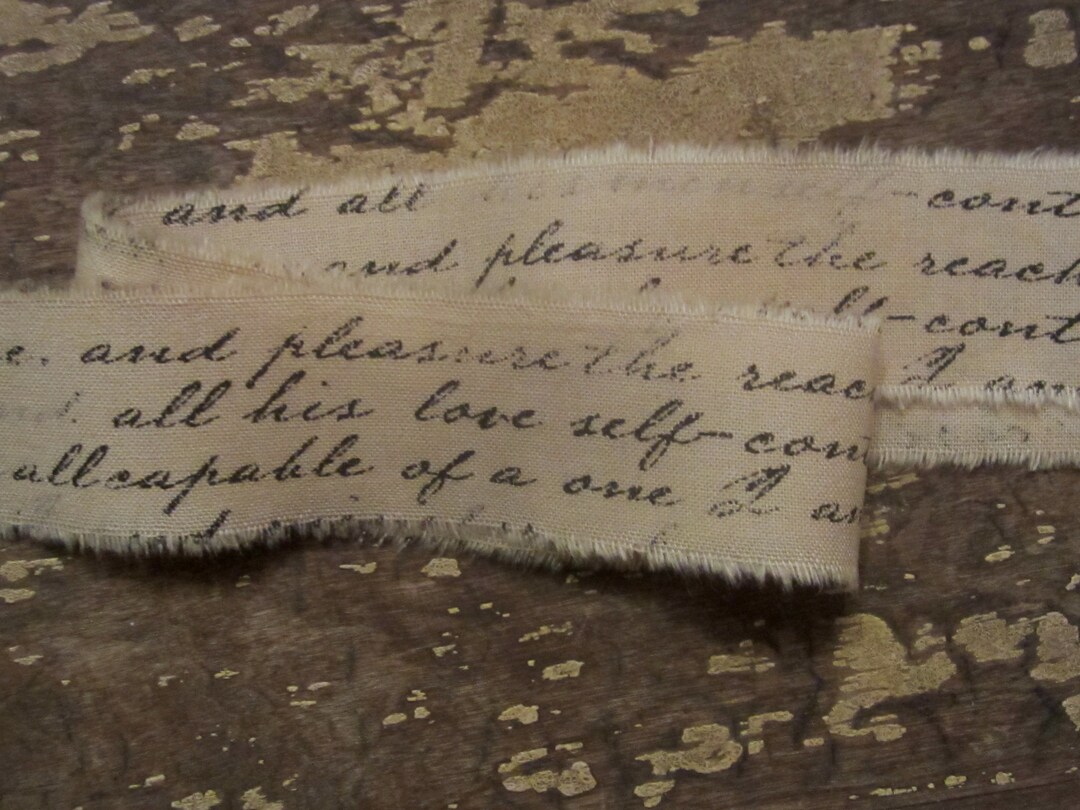 and all -cont
and pleasure the reach
-cont
I an
e. and pleasure the reac
all his love self-con
all capable of a one I an